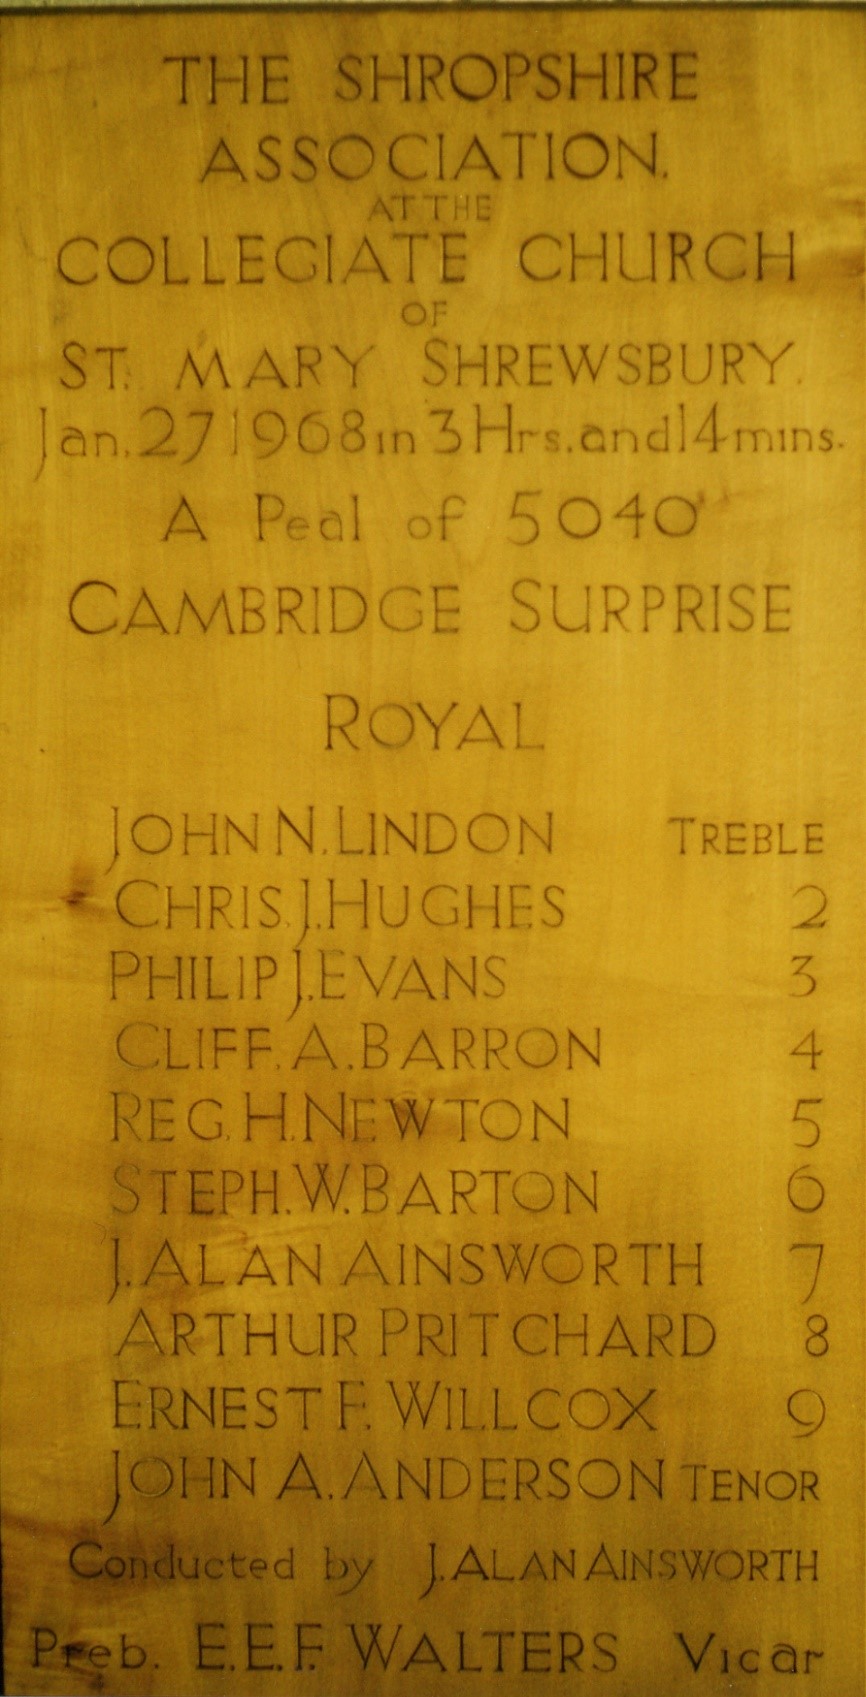 THE SHROPSHIRE
ASSOCIATION.
AT THE
COLLEGIATE CHURCH
OF
ST. MARY SHREWSBURY.
Jan. 27 1968 in 3 Hrs. and 14 mins.
A Peal of 5040
CAMBRIDGE SURPRISE
ROYAL
JOHN N. LINDON TREBLE
CHRIS. J. HUGHES 2
PHILIP J. EVANS 3
CLIFF. A. BARRON 4
REG. H. NEWTON 5
STEPH. W. BARTON 6
J. ALAN AINSWORTH 7
ARTHUR PRITCHARD 8
ERNEST F. WILLCOX 9
JOHN A. ANDERSON TENOR
Conducted by J. ALAN AINSWORTH
Preb. E.E.F. WALTERS Vicar